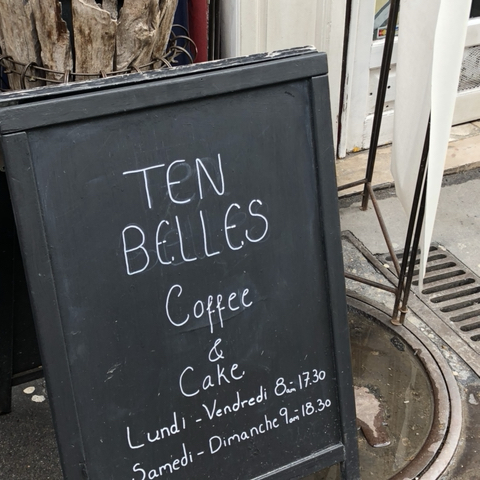 TEN
BELLES
Coffee
&
Cake
Lundi - Vendredi 8am 17.30
Samedi - Dimanche 9am 18.30